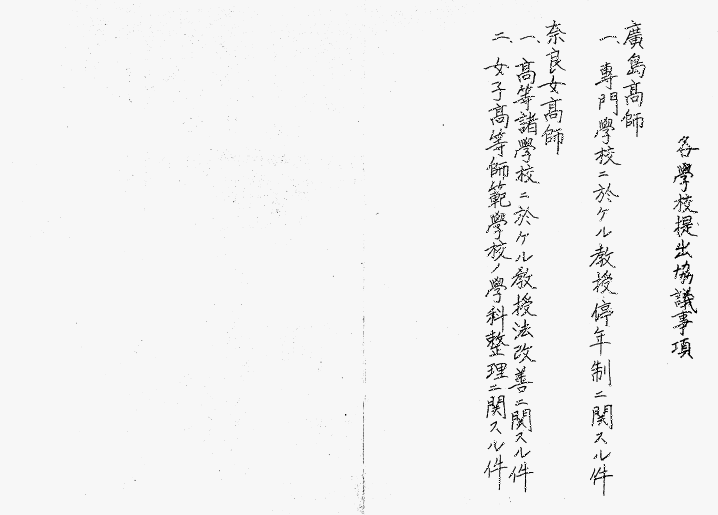 各學校提出協議事項
廣島高師
一、專門學校ニ於ケル教授停年制ニ関スル件
奈良女高師
一、高等諸學校ニ於ケル教授法改善ニ関スル件
二、女子高等師範學校ノ學科整理ニ関スル件